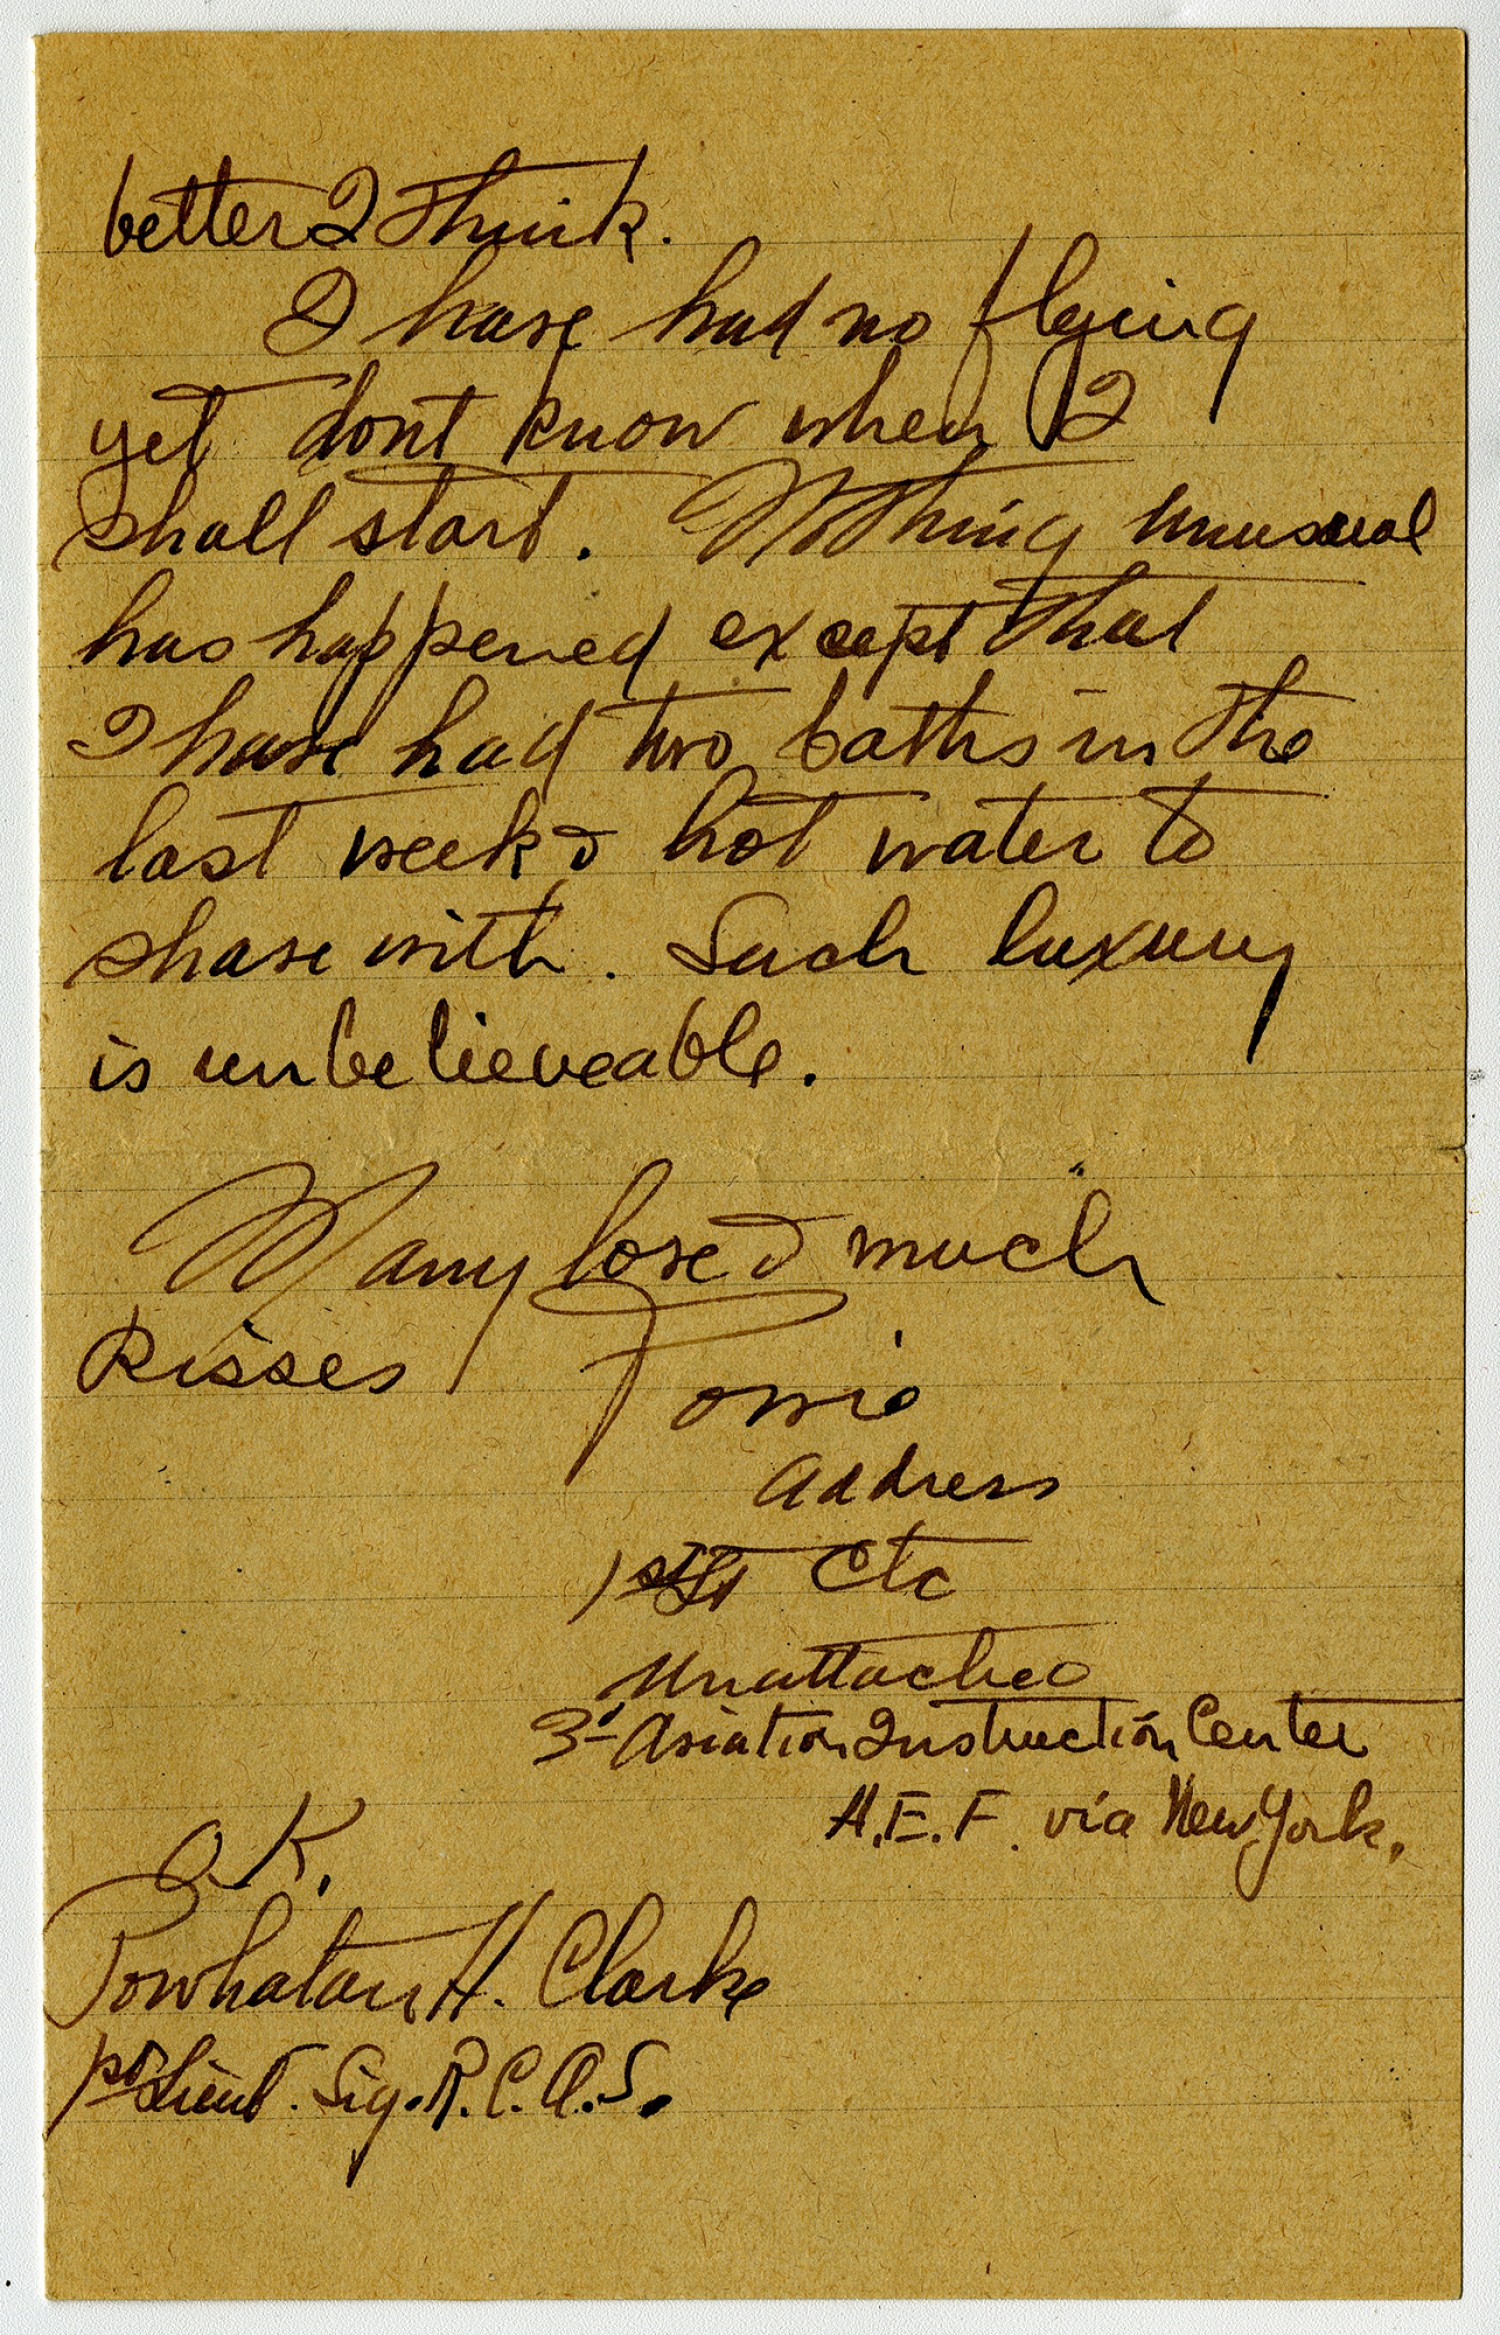 better I think.
I have had no flying
yet dont know when I
shall start. Nothing unusual
has happened except that
I have had two baths in the
last week & hot water to
shave with. Such luxury
is unbelieveable.
Many love & much
Kisses
Powie
Address
1st Lt etc
Unattached
3d Aviation Instruction Center
A.E.F. via New York.
O.K.
Powhatan H. Clarke
1st Lieut. Sig. R.C.A.S.